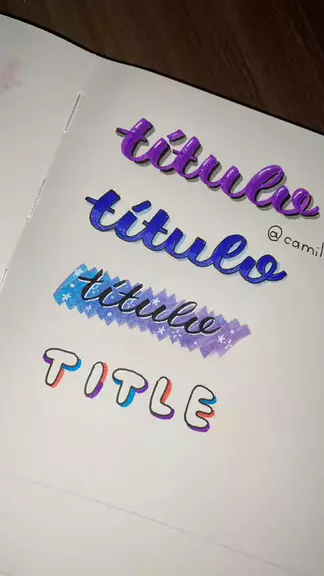 título
@camil
título
título
TITLE